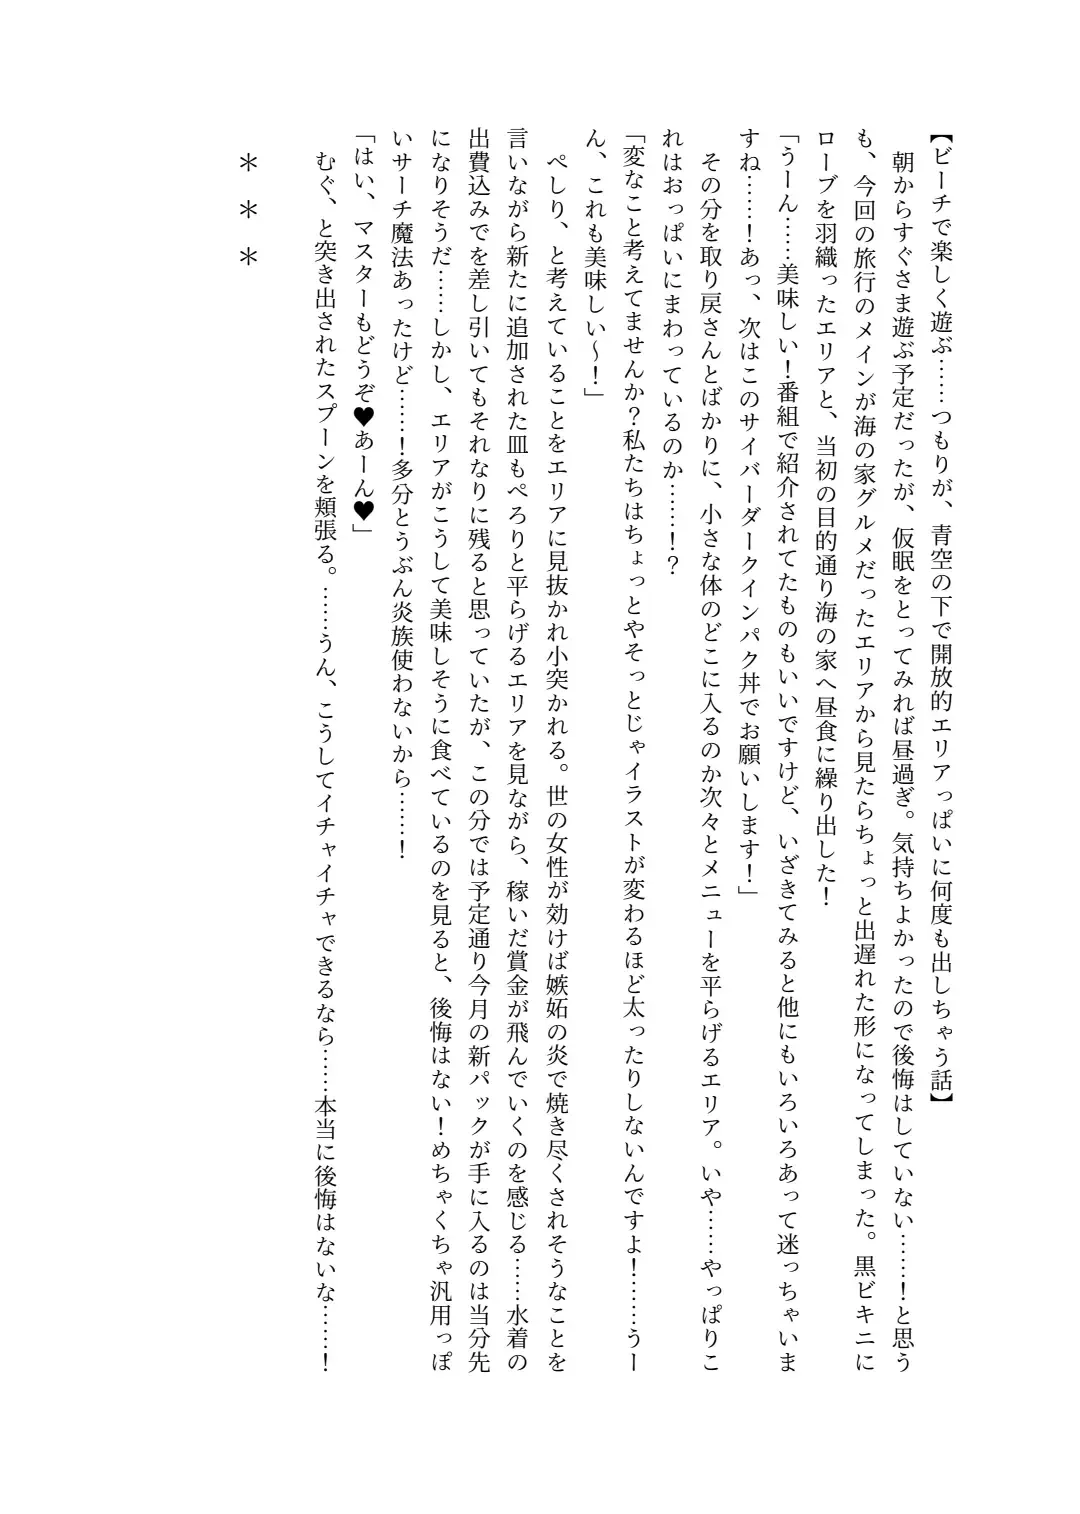 【ビーチで楽しく遊ぶ……つもりが、青空の下で開放的エリアっぱいに何度も出しちゃう話】
朝からすぐさま遊ぶ予定だったが、仮眠をとってみれば昼過ぎ。気持ちよかったので後悔はしていない……！と思う
も、今回の旅行のメインが海の家グルメだったエリアから見たらちょっと出遅れた形になってしまった。黒ビキニに
ローブを羽織ったエリアと、当初の目的通り海の家へ昼食に繰り出した！
「うーん……美味しい！番組で紹介されてたものもいいですけど、いざきてみると他にもいろいろあって迷っちゃいま
すね……！あっ、次はこのサイバーダークインパク丼でお願いします！」
その分を取り戻さんとばかりに、小さな体のどこに入るのか次々とメニューを平らげるエリア。いや……やっぱりこ
れはおっぱいにまわっているのか……！？
「変なこと考えてませんか？私たちはちょっとやそっとじゃイラストが変わるほど太ったりしないんですよ！……うー
ん、これも美味しい～！」
ぺしり、と考えていることをエリアに見抜かれ小突かれる。世の女性が効けば嫉妬の炎で焼き尽くされそうなことを
言いながら新たに追加された皿もぺろりと平らげるエリアを見ながら、稼いだ賞金が飛んでいくのを感じる……水着の
出費込みでを差し引いてもそれなりに残ると思っていたが、この分では予定通り今月の新パックが手に入るのは当分先
になりそうだ……しかし、エリアがこうして美味しそうに食べているのを見ると、後悔はない！めちゃくちゃ汎用っぽ
いサーチ魔法あったけど……！多分とうぶん炎族使わないから……！
「はい、マスターもどうぞ♥あーん♥」
むぐ、と突き出されたスプーンを頬張る。……うん、こうしてイチャイチャできるなら……本当に後悔はないな……！
＊　＊　＊